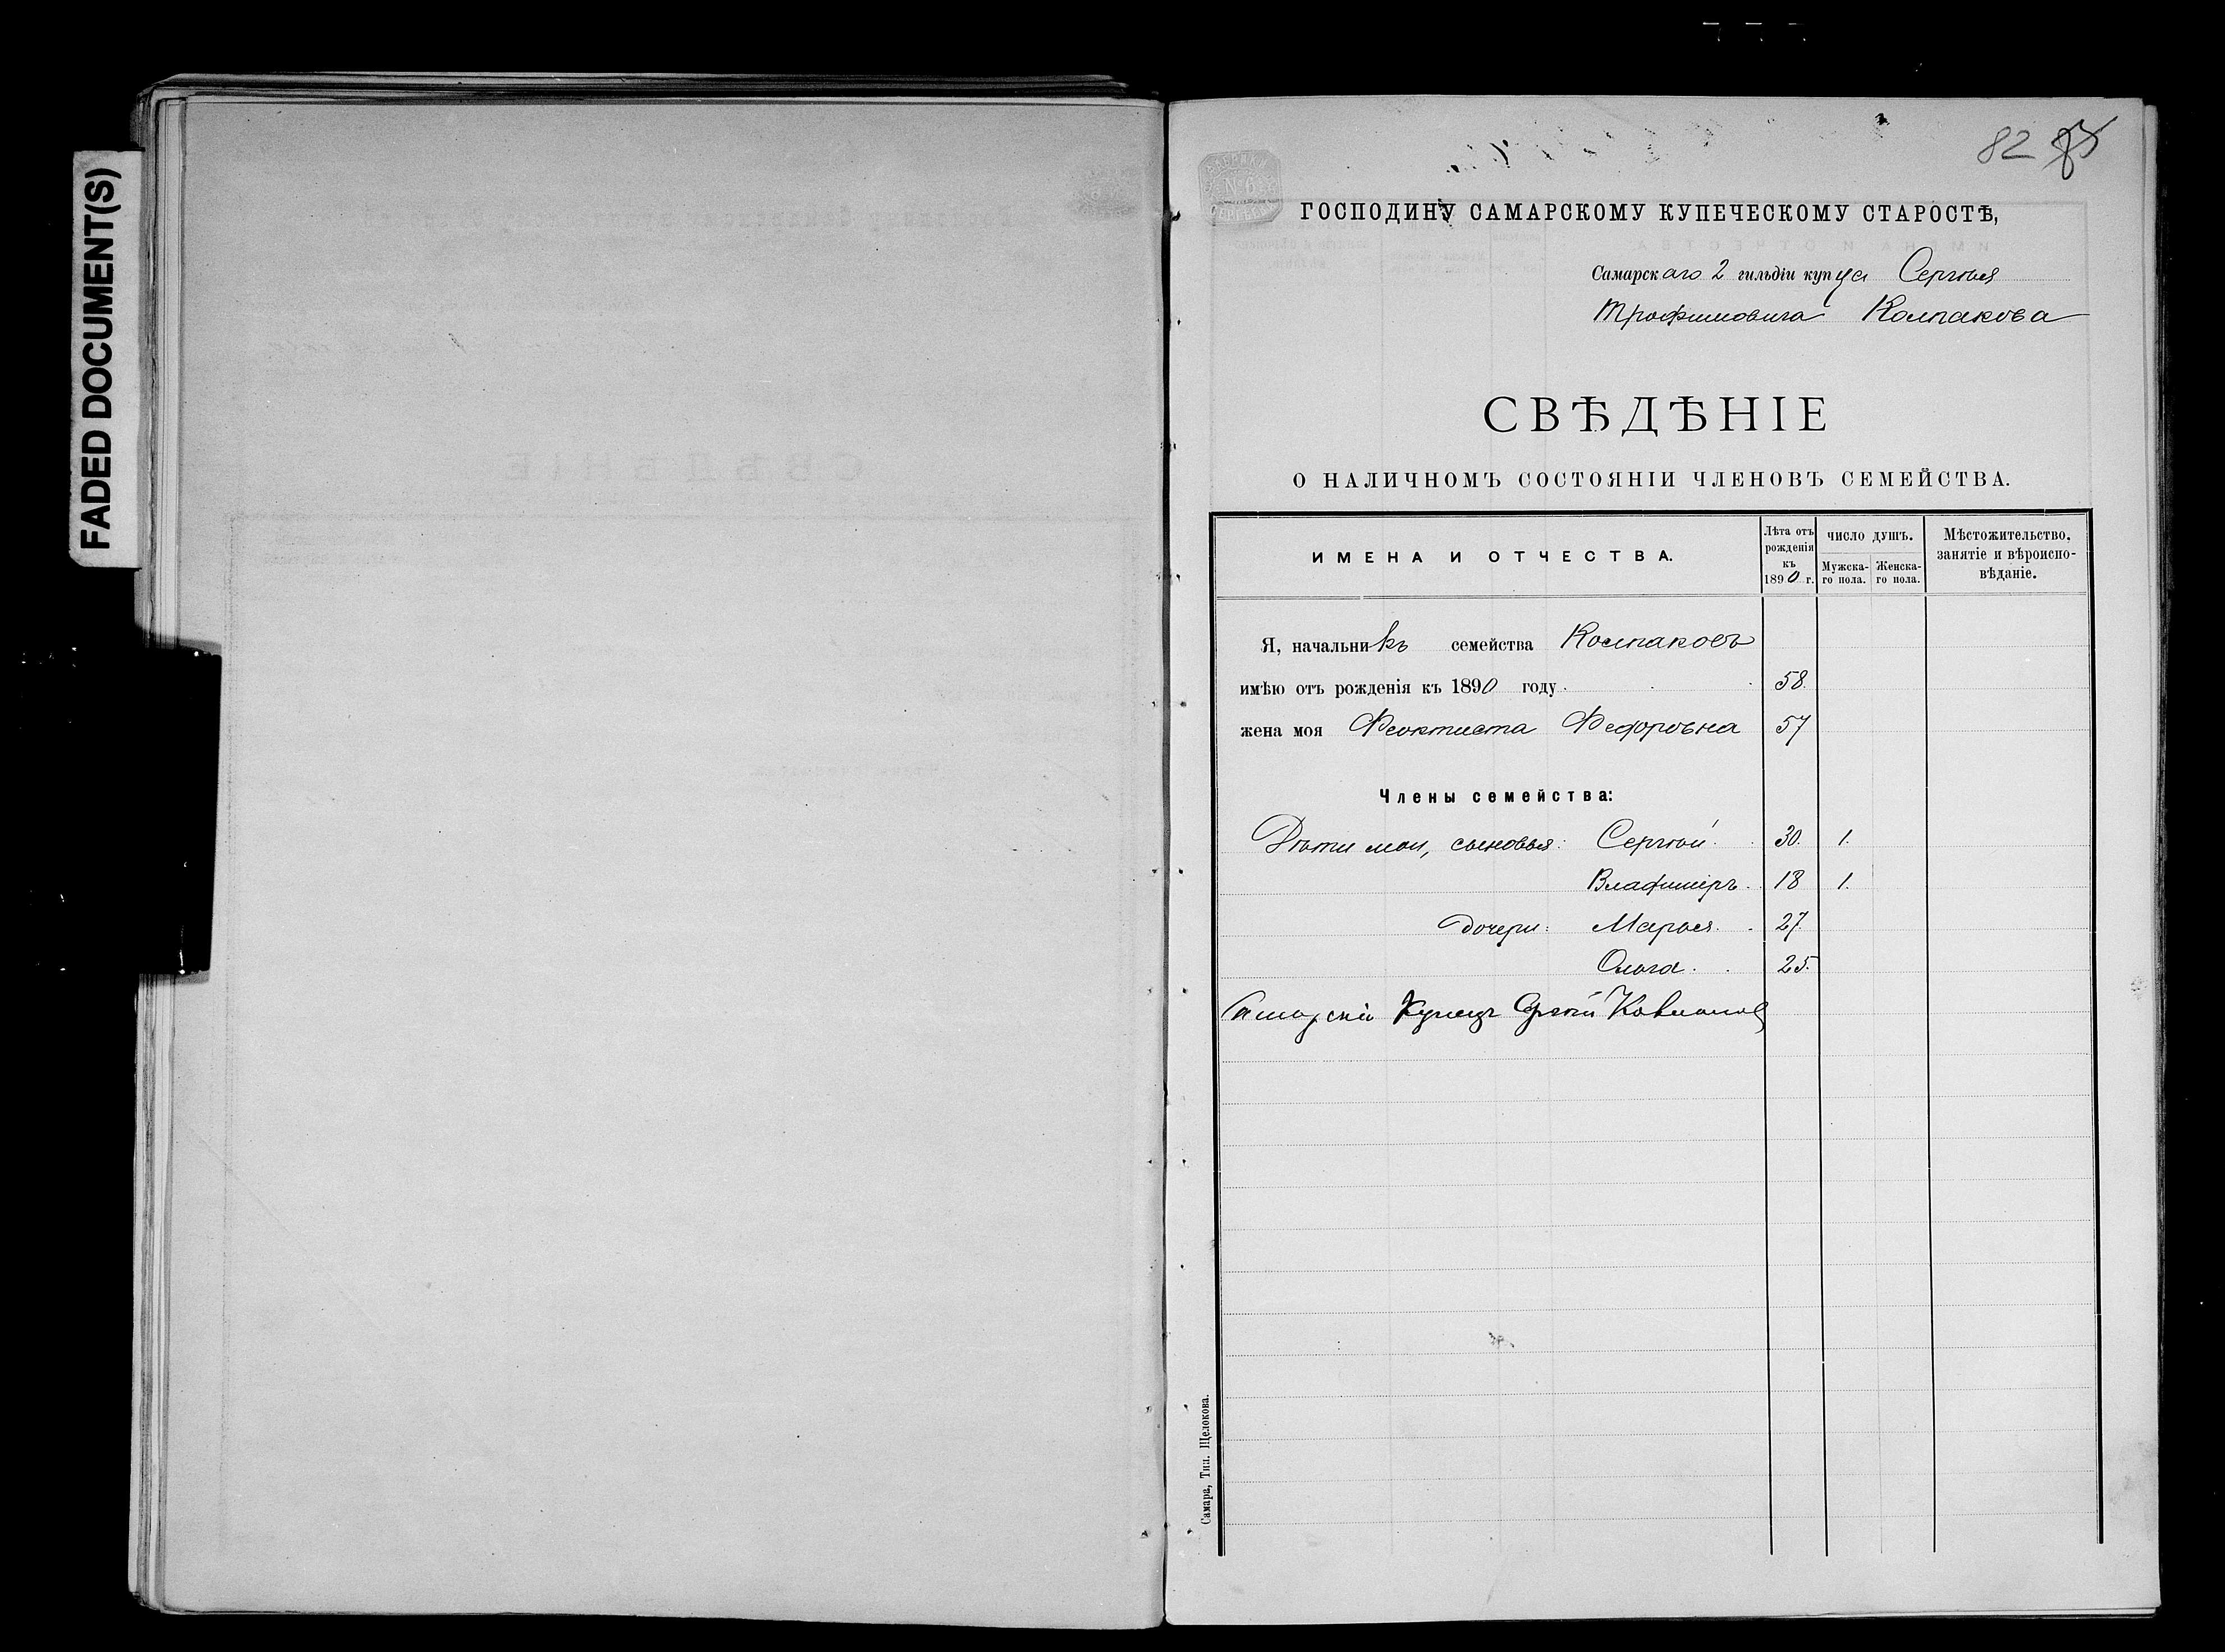 FADED DOCUMENT(S)
82
ГОСПОДИНУ САМАРСКОМУ КУПЕЧЕСКОМУ СТАРОСТѢ,
Самарскаго 2 гильдіи купца Сергѣя
Трофимовича Колпакова
СВѢДѢНІЕ
О НАЛИЧНОМЪ СОСТОЯНІИ ЧЛЕНОВЪ СЕМЕЙСТВА.
ИМЕНА И ОТЧЕСТВА.
Лѣта отъ рожденія къ 1890 г.
ЧИСЛО ДУШЪ.
Мужска-го пола.
Женска-го пола.
Мѣстожительство, занятіе и вѣроиспо-вѣданіе.
Я, начальникъ семейства Колпаковъ
имѣю отъ рожденія къ 1890 году 58.
жена моя Феоктиста Федоровна 57
Члены семейства:
Дѣти мои, сыновья: Сергѣй. 30. 1.
Владиміръ. 18 1.
дочери: Марья. 27.
Ольга. 25.
Самарскій Купецъ Сергѣй
Самара, Тип. Щелокова.